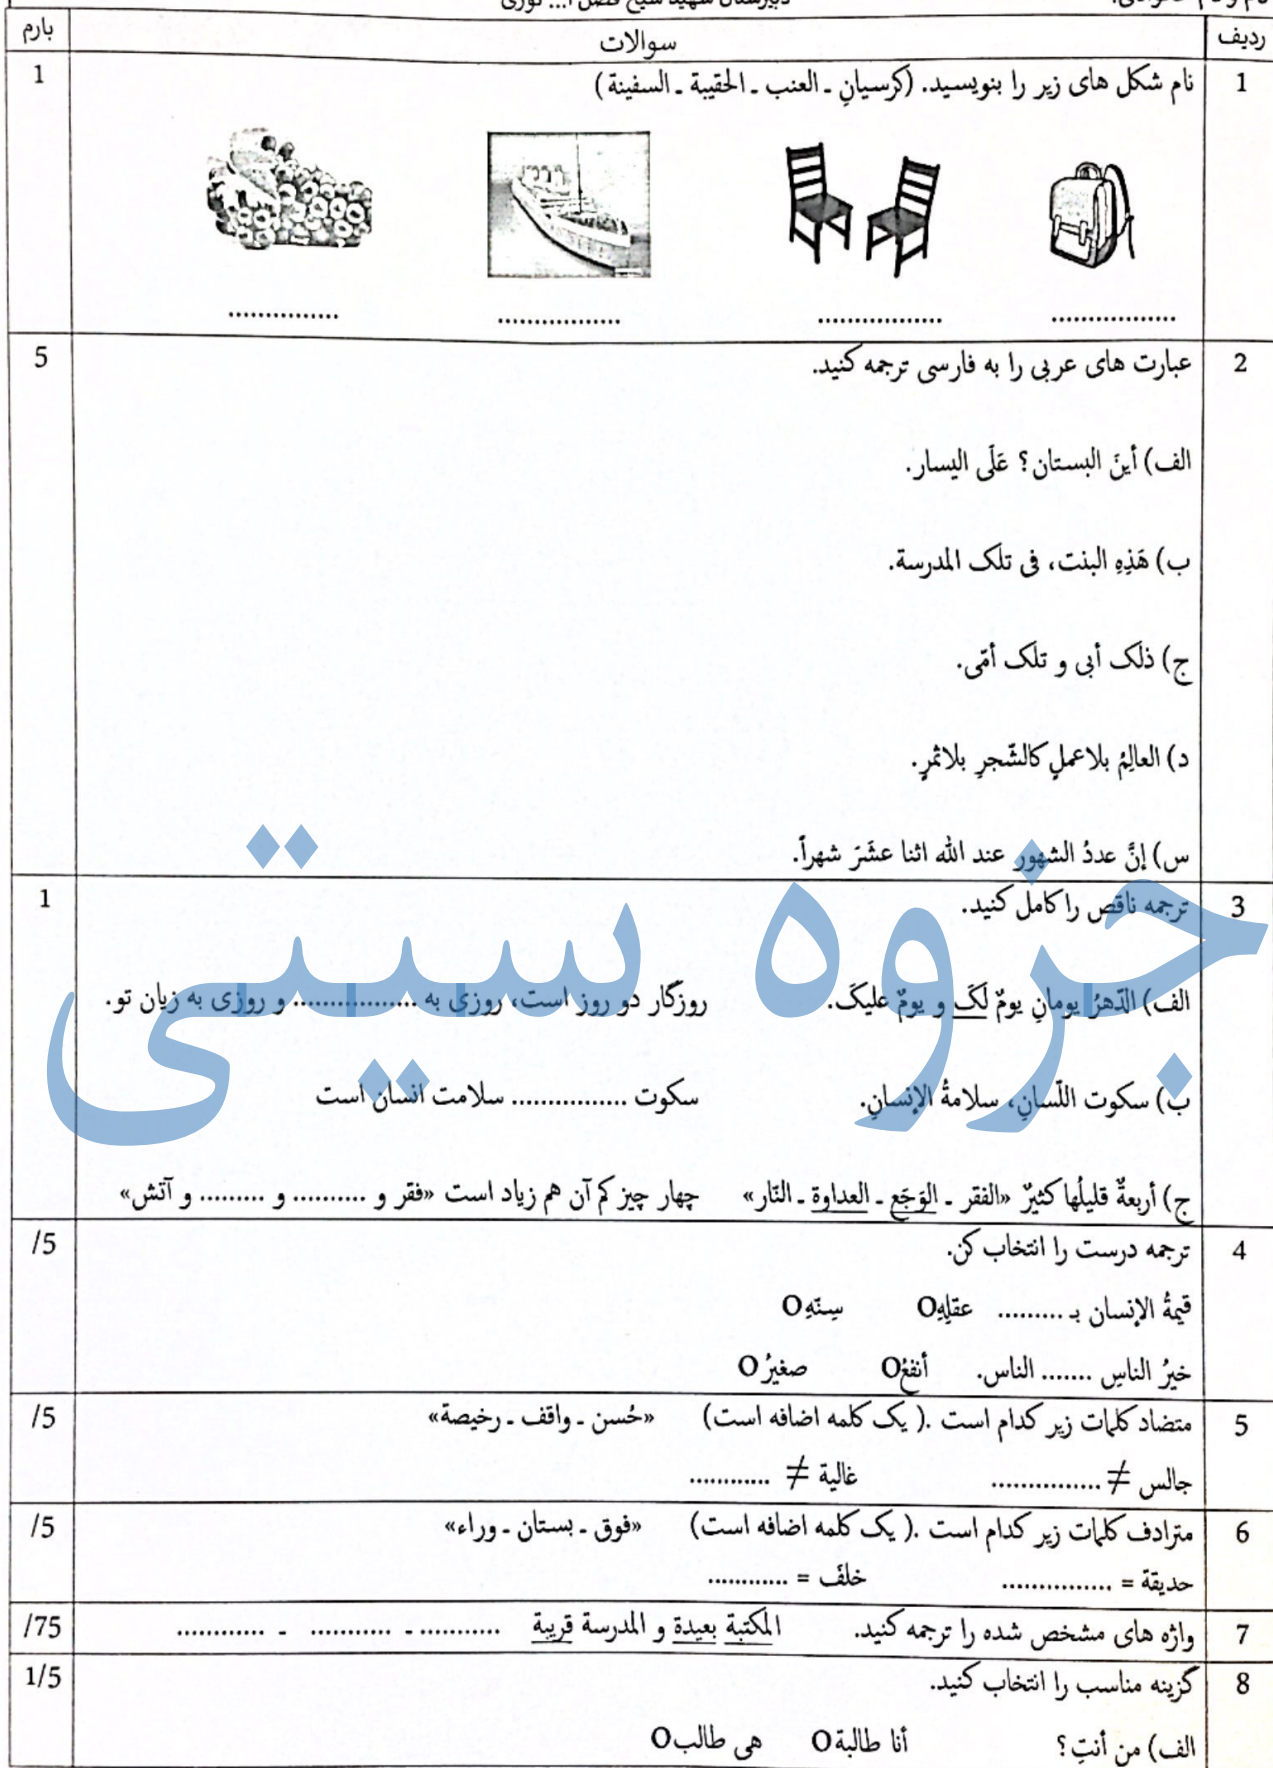 ردیف سوالات بارم
1 نام شکل های زیر را بنویسید. (کرسیانِ ـ العنب ـ الحقیبة ـ السفینة) 1
................. ................. ................. ...............
2 عبارت های عربی را به فارسی ترجمه کنید. 5
الف) أینَ البستان؟ عَلَی الیسار.
ب) هَذِهِ البنت، فی تلک المدرسة.
ج) ذلک أبی و تلک أمّی.
د) العالِمُ بلاعملٍ کالشَّجرِ بلاثمرٍ.
س) إنَّ عددُ الشهور عند الله اثنا عشَرَ شهراً.
3 ترجمه ناقص را کامل کنید. 1
الف) الدّهرُ یومانِ یومٌ لَکَ و یومٌ علیکَ. روزگار دو روز است، روزی به ................. و روزی به زیان تو.
ب) سکوت اللّسانِ، سلامةُ الإنسانِ. سکوت ................ سلامت انسان است
ج) أربعةٌ قلیلُها کثیرٌ «الفقر ـ الوَجَع ـ العداوة ـ النّار» چهار چیز کم آن هم زیاد است «فقر و .......... و ......... و آتش»
4 ترجمه درست را انتخاب کن. /5
قیمةُ الإنسان بـ ......... عقلِهِO سِنّهِO
خیرُ الناسِ ....... الناس. أنفعُO صغیرُO
5 متضاد کلمات زیر کدام است .( یک کلمه اضافه است) «حُسن ـ واقف ـ رخیصة» /5
جالس ≠ ............... غالیة ≠ ............
6 مترادف کلمات زیر کدام است .( یک کلمه اضافه است) «فوق ـ بستان ـ وراء» /5
حدیقة = ............... خلفَ = ............
7 واژه های مشخص شده را ترجمه کنید. المکتبة بعیدة و المدرسة قریبة ........... ـ ........... ـ ............ /75
8 گزینه مناسب را انتخاب کنید. 1/5
الف) من أنتِ؟ أنا طالبةO هی طالبO
جزوه سیتی